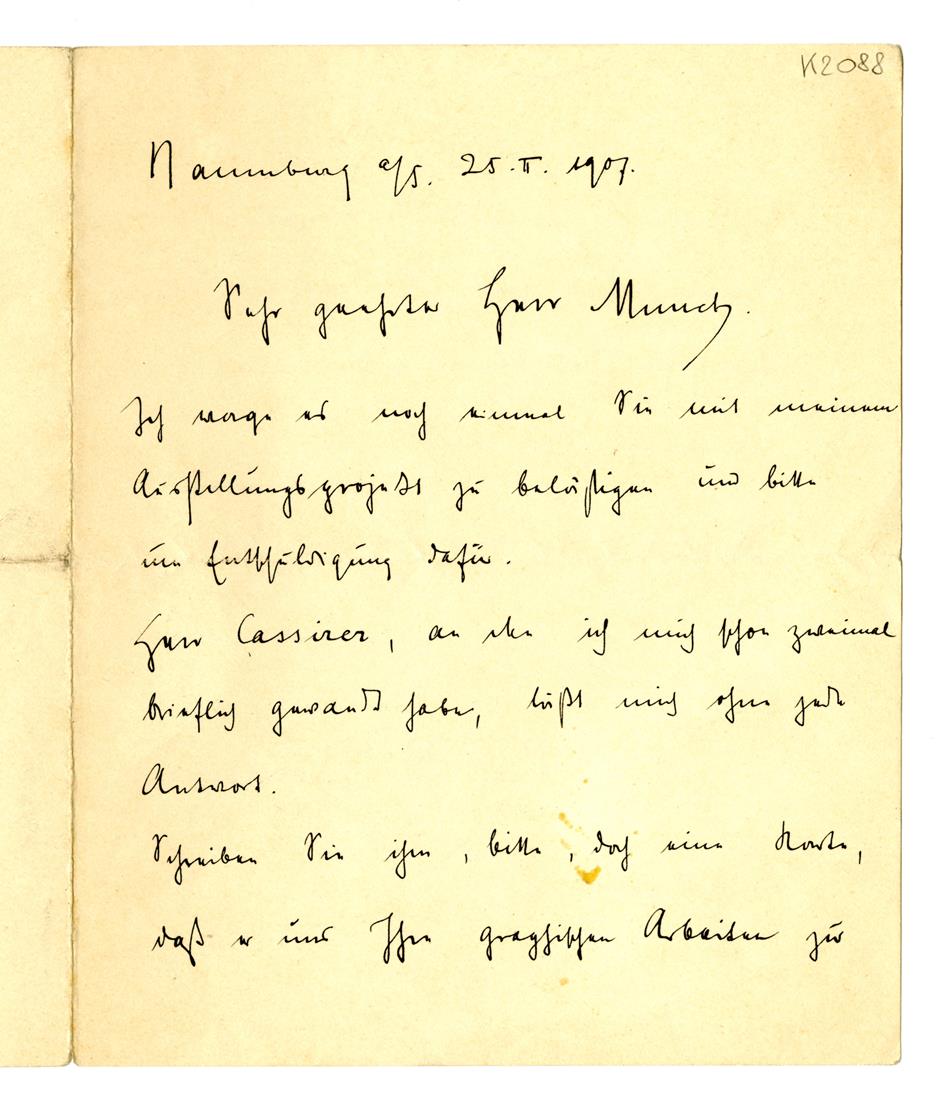 K2088
Naumburg a/S. 25.II. 1907.
Sehr geehrter Herr Munch.
Ich wage es noch einmal Sie mit meinem
Ausstellungsprojekt zu belästigen und bitte
um Entschuldigung dafür.
Herr Cassirer, an den ich mich schon zweimal
brieflich gewandt habe, läßt mich ohne jede
Antwort.
Schreiben Sie ihm, bitte, doch eine Karte,
daß er uns Ihre graphischen Arbeiten zur